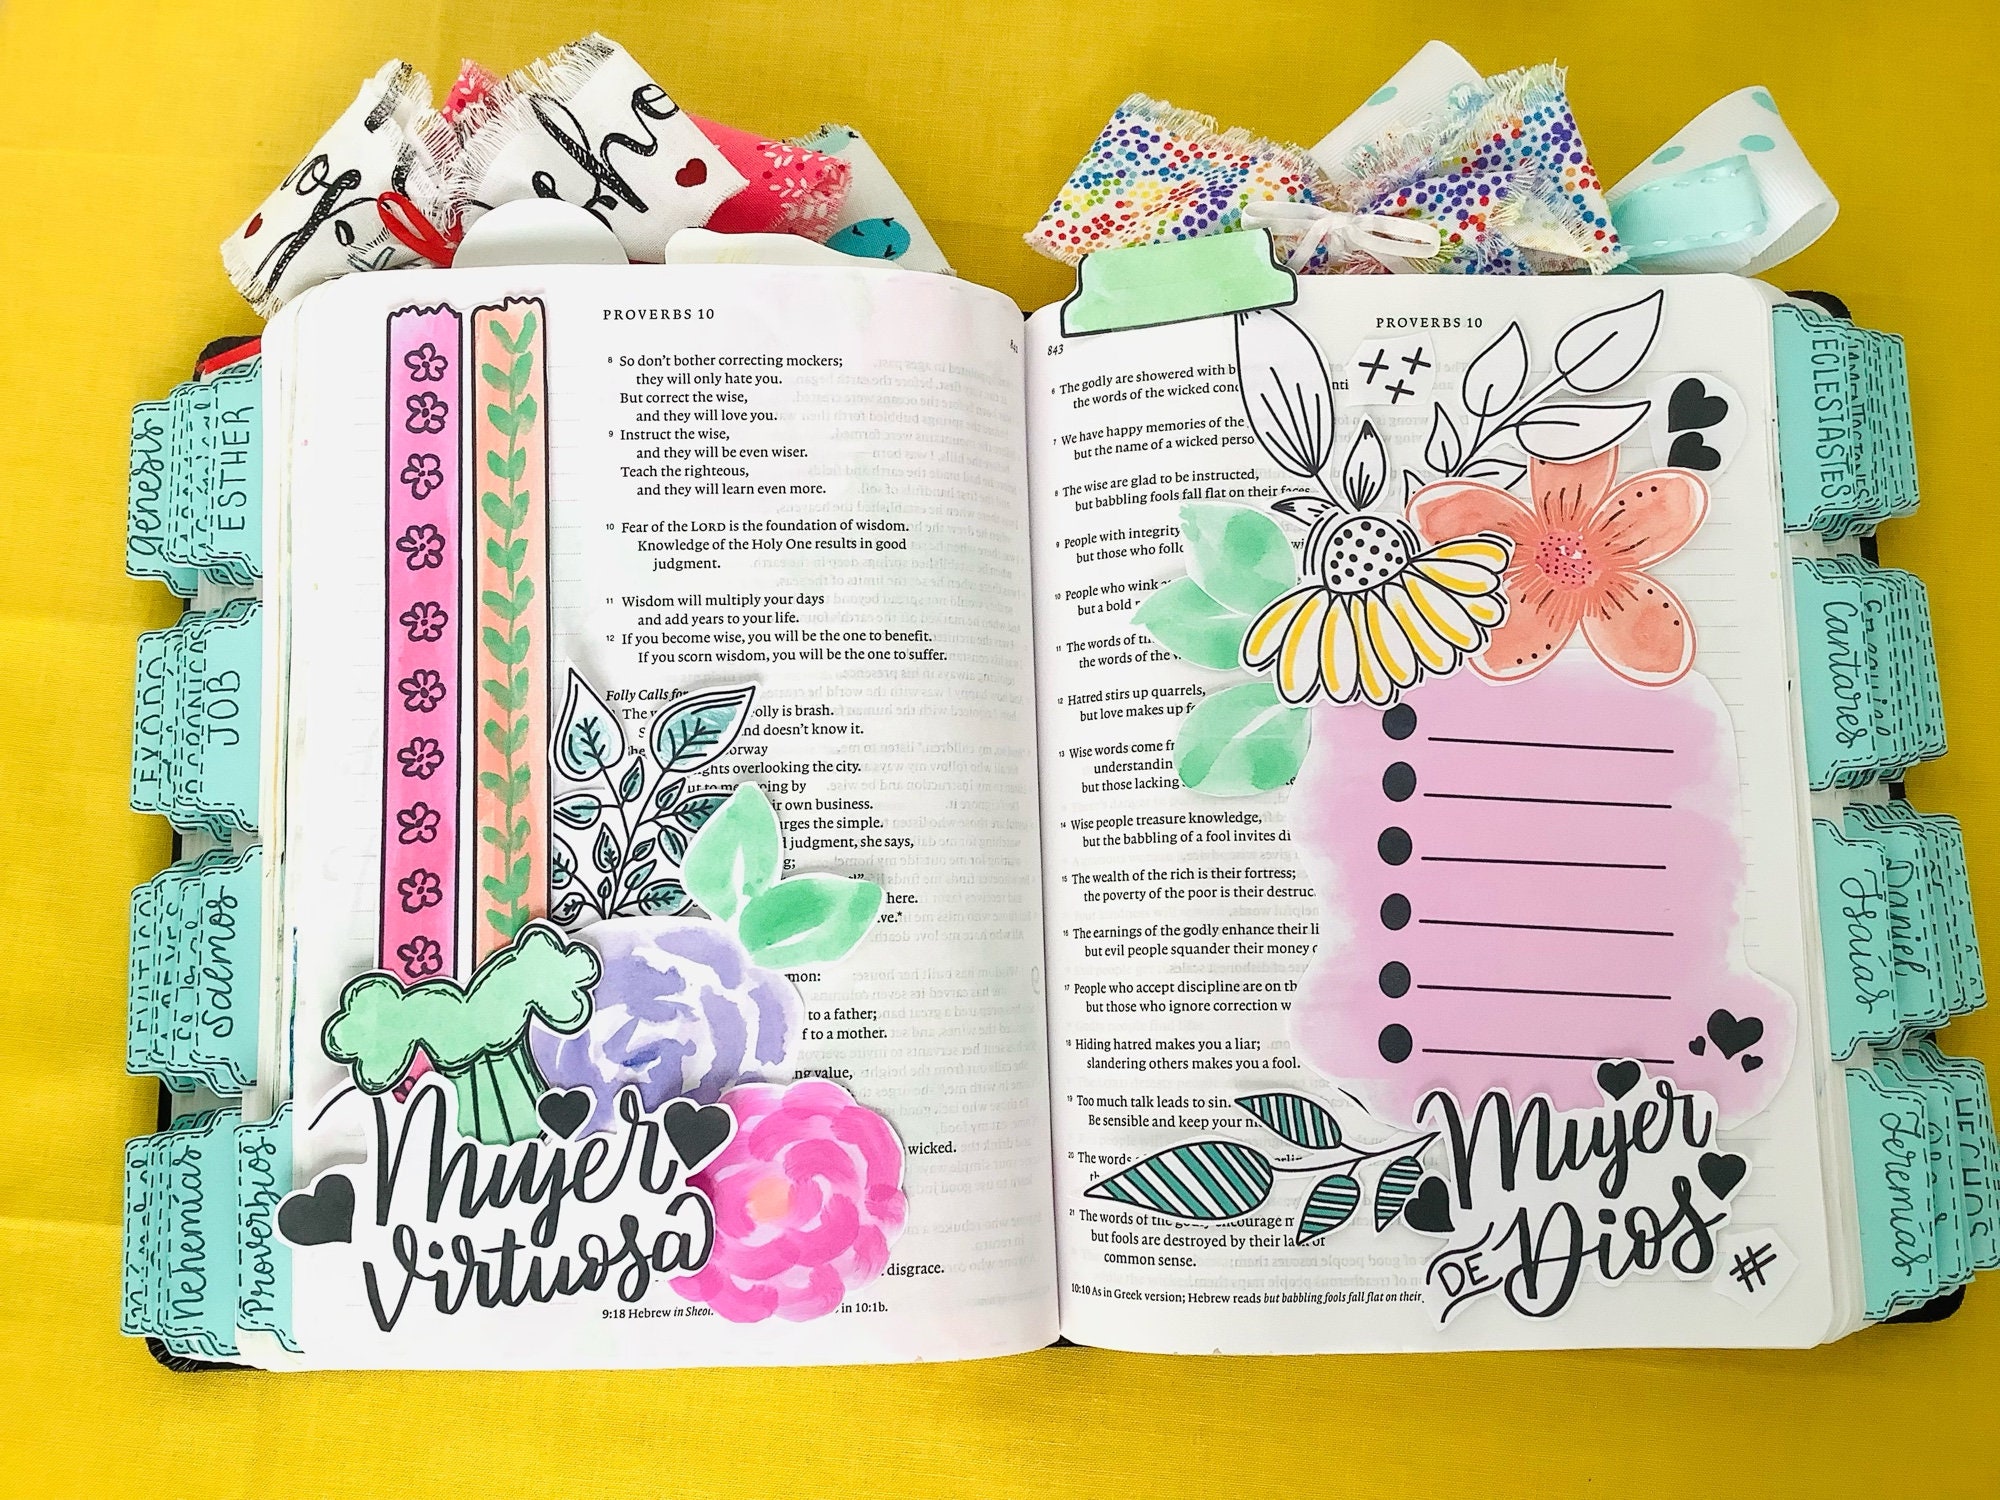 PROVERBS 10
8 So don't bother correcting mockers;
they will only hate you.
But correct the wise,
and they will love you.
9 Instruct the wise,
and they will be even wiser.
Teach the righteous,
and they will learn even more.
10 Fear of the LORD is the foundation of wisdom.
Knowledge of the Holy One results in good
judgment.
11 Wisdom will multiply your days
and add years to your life.
12 If you become wise, you will be the one to benefit.
If you scorn wisdom, you will be the one to suffer.
Folly Calls for
The olly is brash.
nd doesn't know it.
orway
ghts overlooking the city.
ing by
ir own business.
rges the simple.
judgment, she says,
here.
mon:
to a father;
f to a mother.
ng value,
wicked.
disgrace.
9:18 Hebrew in Sheol. in 10:1b.
Mujer
Virtuosa
843
PROVERBS 10
6 The godly are showered with b
the words of the wicked conc
7 We have happy memories of the
but the name of a wicked perso
8 The wise are glad to be instructed,
but babbling fools fall flat on their faces
9 People with integrity
but those who follo
10 People who wink
but a bold
11 The words of th
the words of the
12 Hatred stirs up quarrels,
but love makes up f
13 Wise words come fr
understandin
but those lacking
14 Wise people treasure knowledge,
but the babbling of a fool invites di
15 The wealth of the rich is their fortress;
the poverty of the poor is their destruc
16 The earnings of the godly enhance their li
but evil people squander their money
17 People who accept discipline are on th
but those who ignore correction w
18 Hiding hatred makes you a liar;
slandering others makes you a fool.
19 Too much talk leads to sin.
Be sensible and keep your m
20 The words
21 The words of the godly encourage m
but fools are destroyed by their lack of
common sense.
10:10 As in Greek version; Hebrew reads but babbling fools fall flat on their
Mujer
DE Dios
#
génesis
ESTHER
JOB
Salmos
Nehemías
Proverbios
ECLESIASTES
Cantares
Daniel
Isaías
Jeremías